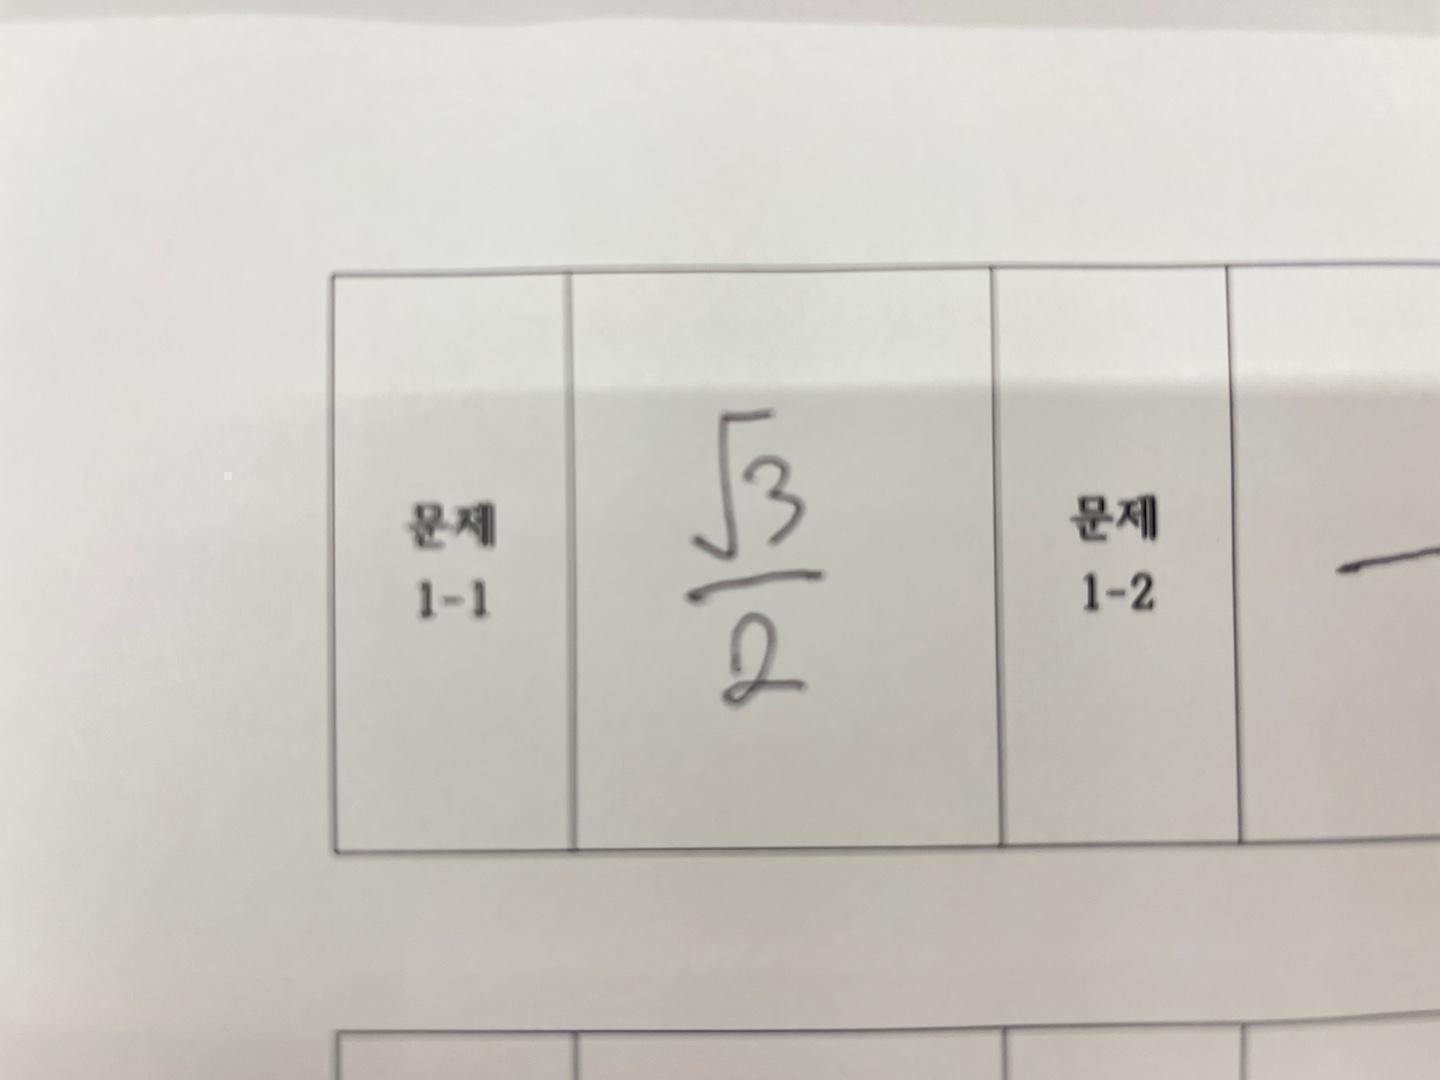 문제
1-1
√3
2
문제
1-2